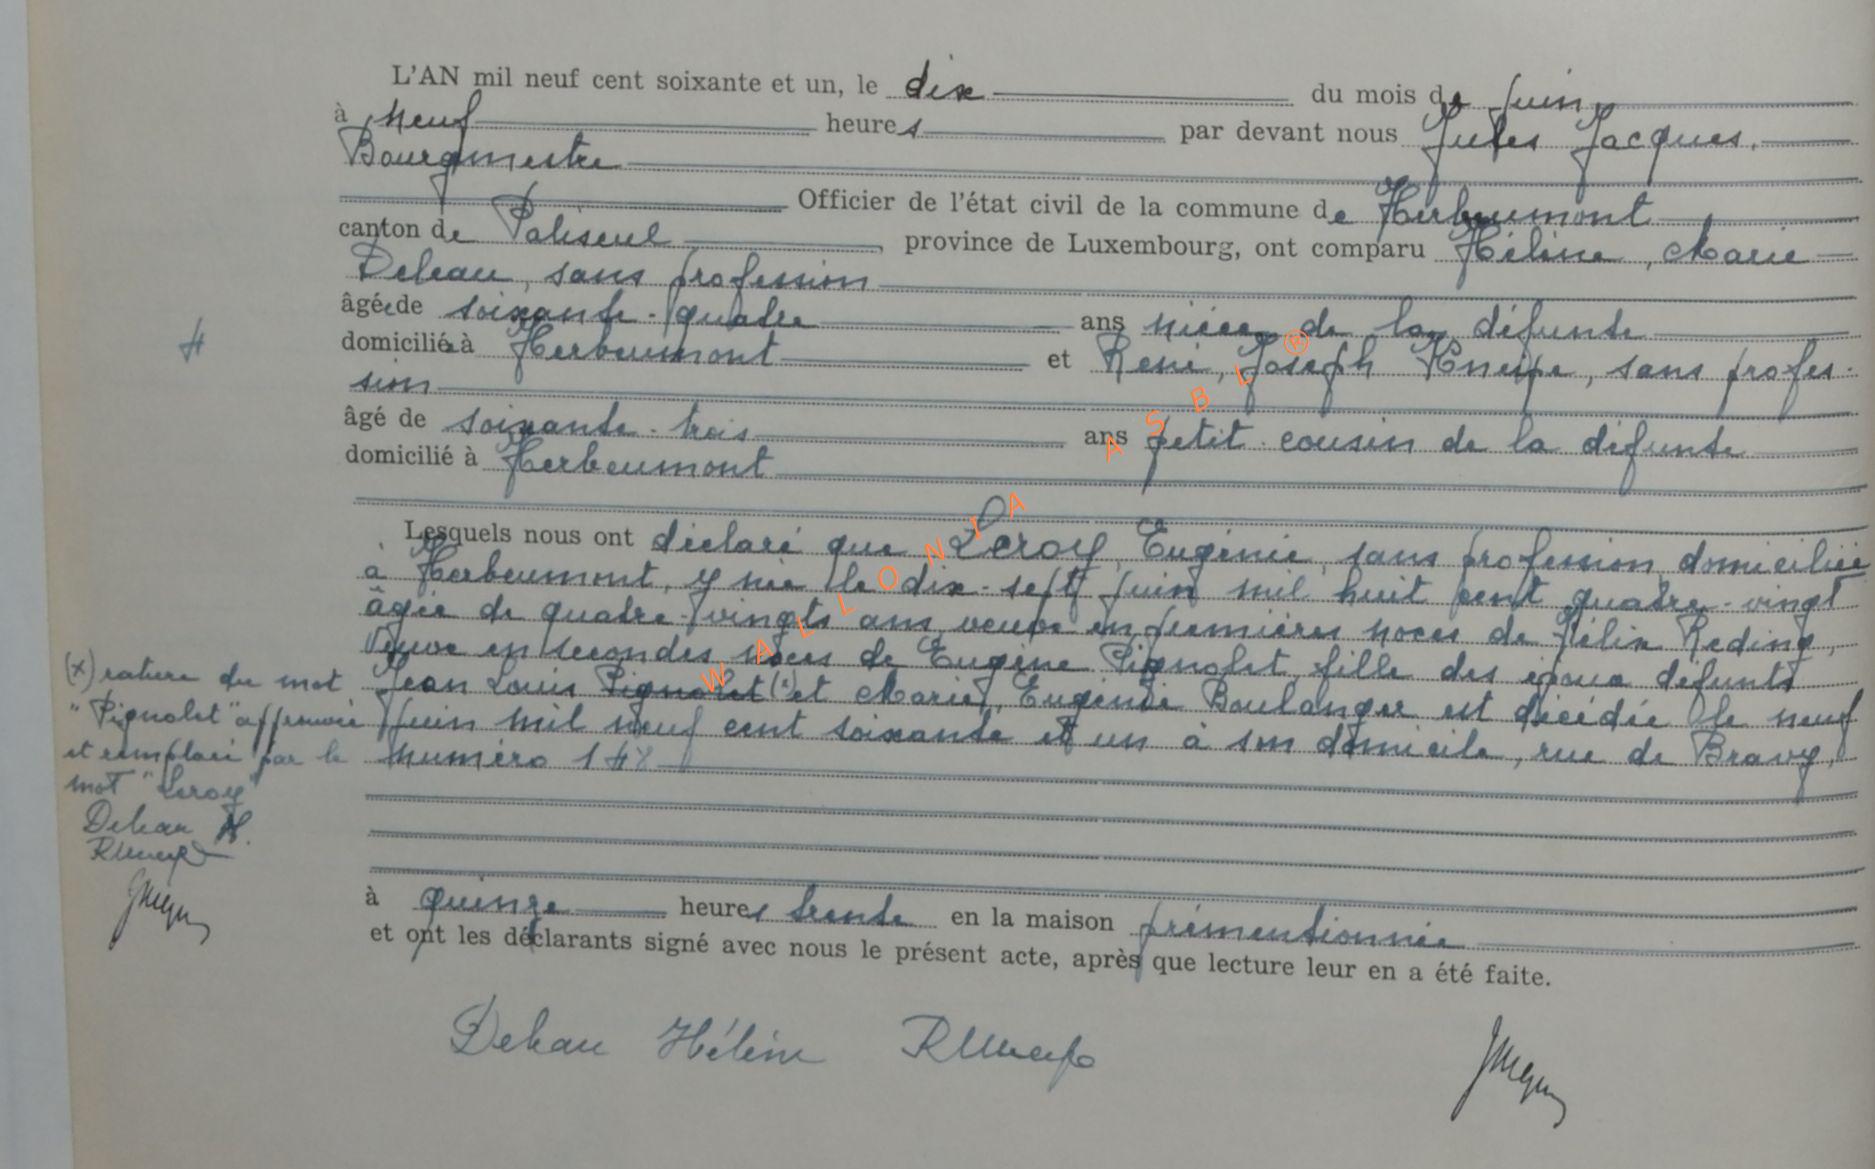 L'AN mil neuf cent soixante et un, le dix du mois de juin
à neuf heures par devant nous Jules Jacques,
Bourgmestre
Officier de l'état civil de la commune de Herbeumont
canton de Paliseul, province de Luxembourg, ont comparu Hélène, Marie
Dehau, sans profession
âgée de soixante-quatre ans nièce de la défunte
domiciliée à Herbeumont et René, Joseph Kneipe, sans profes-
sion
âgé de soixante-trois ans petit-cousin de la défunte
domicilié à Herbeumont
Lesquels nous ont déclaré que Leroy, Eugénie, sans profession, domiciliée
à Herbeumont, y née le dix-sept juin mil huit cent quatre-vingt
âgée de quatre-vingts ans, veuve en premières noces de Félix Reding,
veuve en secondes noces de Eugène Pignolet, fille des époux défunts
Jean Louis Pignolet (x) et Marie, Eugénie Boulanger est décédée le neuf
juin mil neuf cent soixante et un à son domicile, rue de Bravy,
numéro
à quinze heures trente en la maison prémentionnée
et ont les déclarants signé avec nous le présent acte, après que lecture leur en a été faite.
Dehau Hélène
(x) rature du mot
"Pignolet" approuvée
et remplacé par le
mot "Leroy"
Dehau H.
WALLONIA ASBL ®